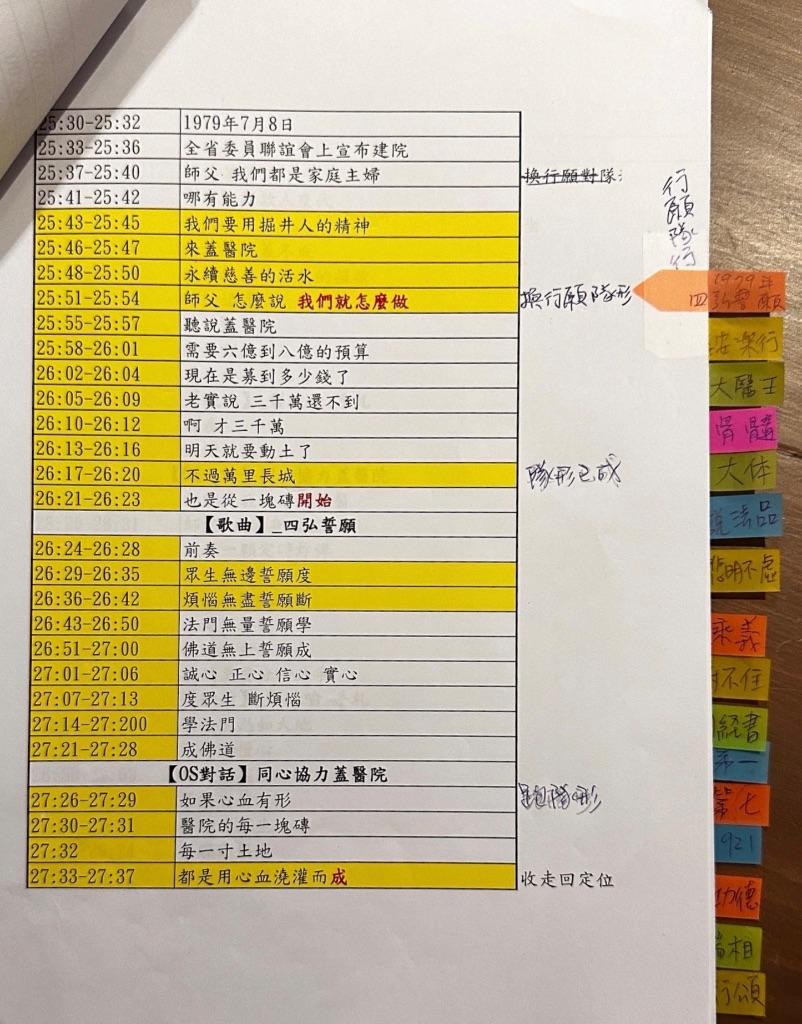 25:30-25:32 1979年7月8日
25:33-25:36 全省委員聯誼會上宣布建院
25:37-25:40 師父 我們都是家庭主婦 換行願對隊:
25:41-25:42 哪有能力
25:43-25:45 我們要用掘井人的精神
25:46-25:47 來蓋醫院
25:48-25:50 永續慈善的活水
25:51-25:54 師父 怎麼說 我們就怎麼做 換行願隊形
25:55-25:57 聽說蓋醫院
25:58-26:01 需要六億到八億的預算
26:02-26:04 現在是募到多少錢了
26:05-26:09 老實說 三千萬還不到
26:10-26:12 啊 才三千萬
26:13-26:16 明天就要動土了
26:17-26:20 不過萬里長城 隊形已成
26:21-26:23 也是從一塊磚開始
【歌曲】_四弘誓願
26:24-26:28 前奏
26:29-26:35 眾生無邊誓願度
26:36-26:42 煩惱無盡誓願斷
26:43-26:50 法門無量誓願學
26:51-27:00 佛道無上誓願成
27:01-27:06 誠心 正心 信心 實心
27:07-27:13 度眾生 斷煩惱
27:14-27:200 學法門
27:21-27:28 成佛道
【OS對話】同心協力蓋醫院
27:26-27:29 如果心血有形 跑隊形
27:30-27:31 醫院的每一塊磚
27:32 每一寸土地
27:33-27:37 都是用心血澆灌而成 收走回定位
行願隊行
1979年
四弘誓願
樂行
大醫王
骨髓
大体
說法品
明不虛
乘義
不住
經書
第七
921
功德
相
行頌